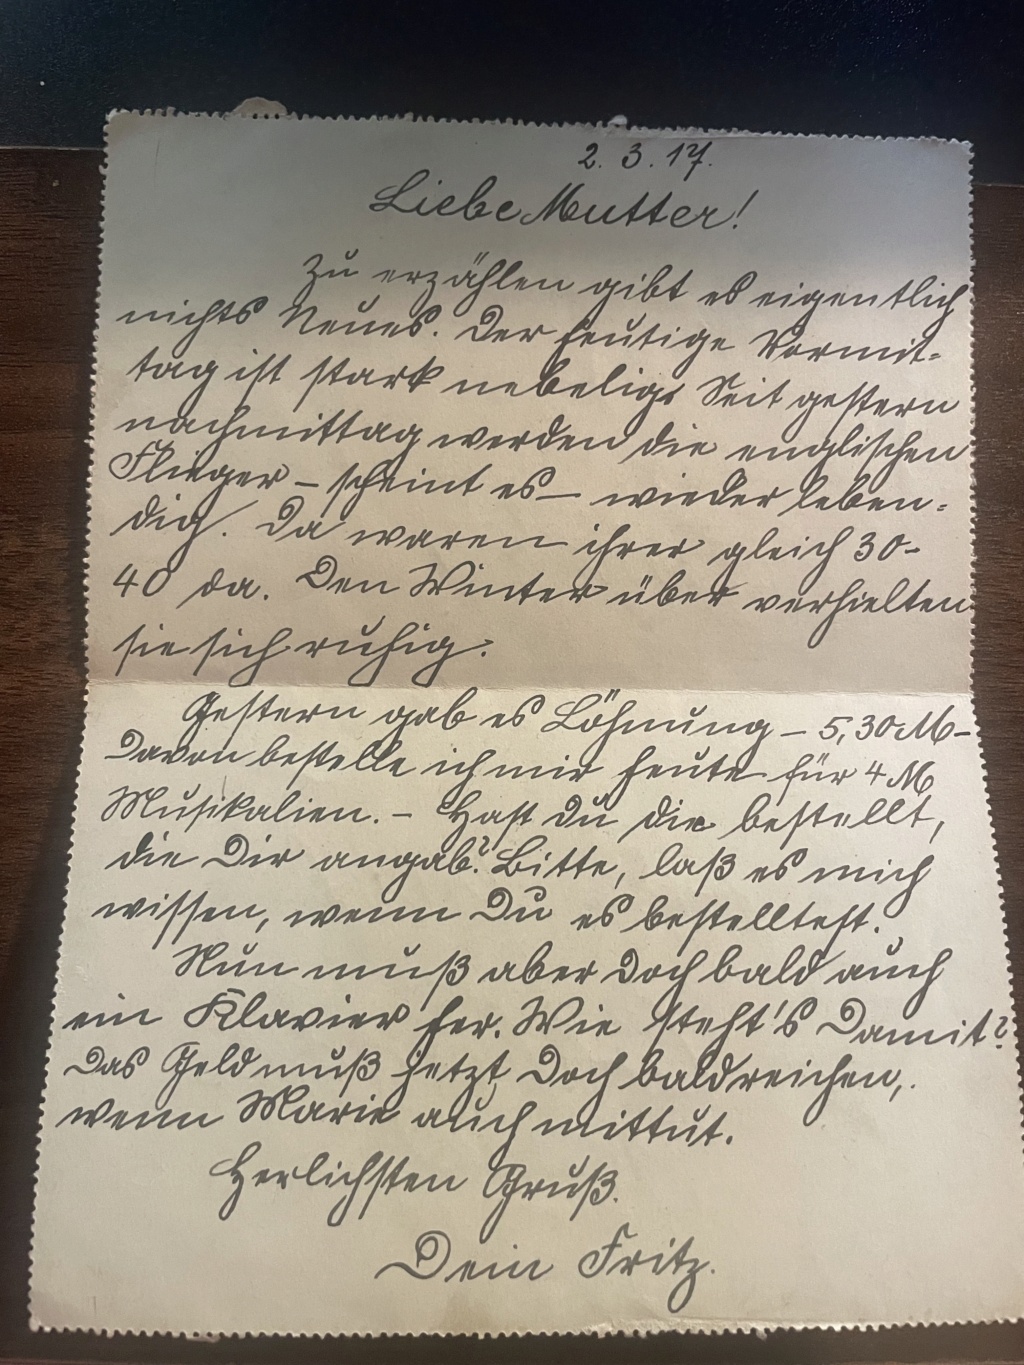 2. 3. 17.
Liebe Mutter!
Zu erzählen gibt es eigentlich
nichts Neues. Der heutige Vormit-
tag ist stark nebelig. Seit gestern
nachmittag werden die englischen
Flieger – scheint es – wieder leben-
dig. Da waren ihrer gleich 30-
40 da. Den Winter über verhielten
sie sich ruhig.
Gestern gab es Löhnung – 5,30 M –
Davon bestelle ich mir heute für 4 M
Musikalien. – Hast Du die bestellt,
die Dir angab? Bitte, laß es mich
wissen, wenn Du es bestelltest.
Nun muß aber doch bald auch
ein Klavier her. Wie steht's damit?
Das Geld muß jetzt doch bald reichen,
wenn Marie auch mittut.
Herlichsten Gruß.
Dein Fritz.